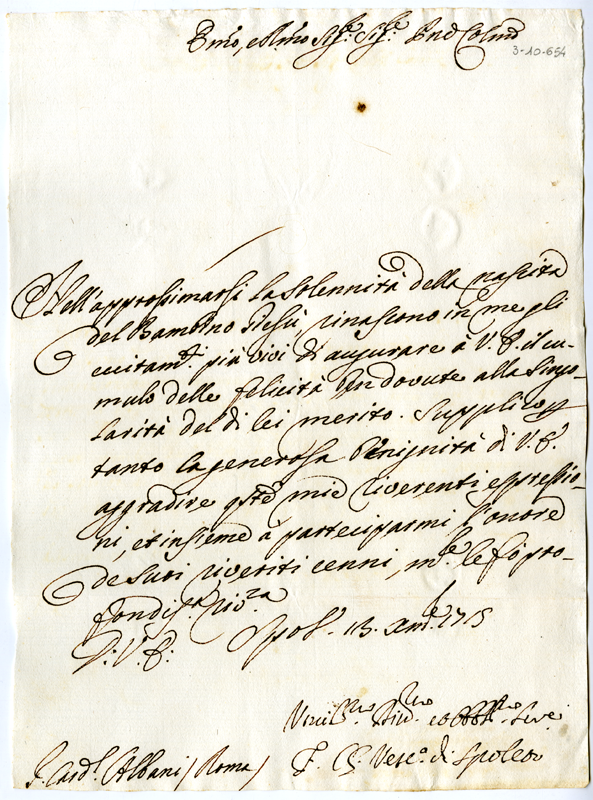 Em̃o, e Rm̃o Sig.re Sig.re Pñe Colmõ
3-10-654
Nell'approssimarsi la solennità della nascita
del Bambino Giesù, rinascono in me gli
eccitam.ti più vivi di augurare à V. E. il cu-
mulo delle felicità ben dovute alla singo-
larità del di lei merito. Supplico p
tanto la generosa benignità di V. E.
aggradire q.ste mie riverenti espressio-
ni, et insieme à parteciparmi l'onore
de suoi riveriti cenni, m.e le fò pro-
fondiss.a riv.za
D. V. E. Spol. 13. Xm.e 1715
S. Card.l Albani / Roma /
Um̃il.mo Div.mo Obblig.mo Serv.e
Vesc.o di Spoleto